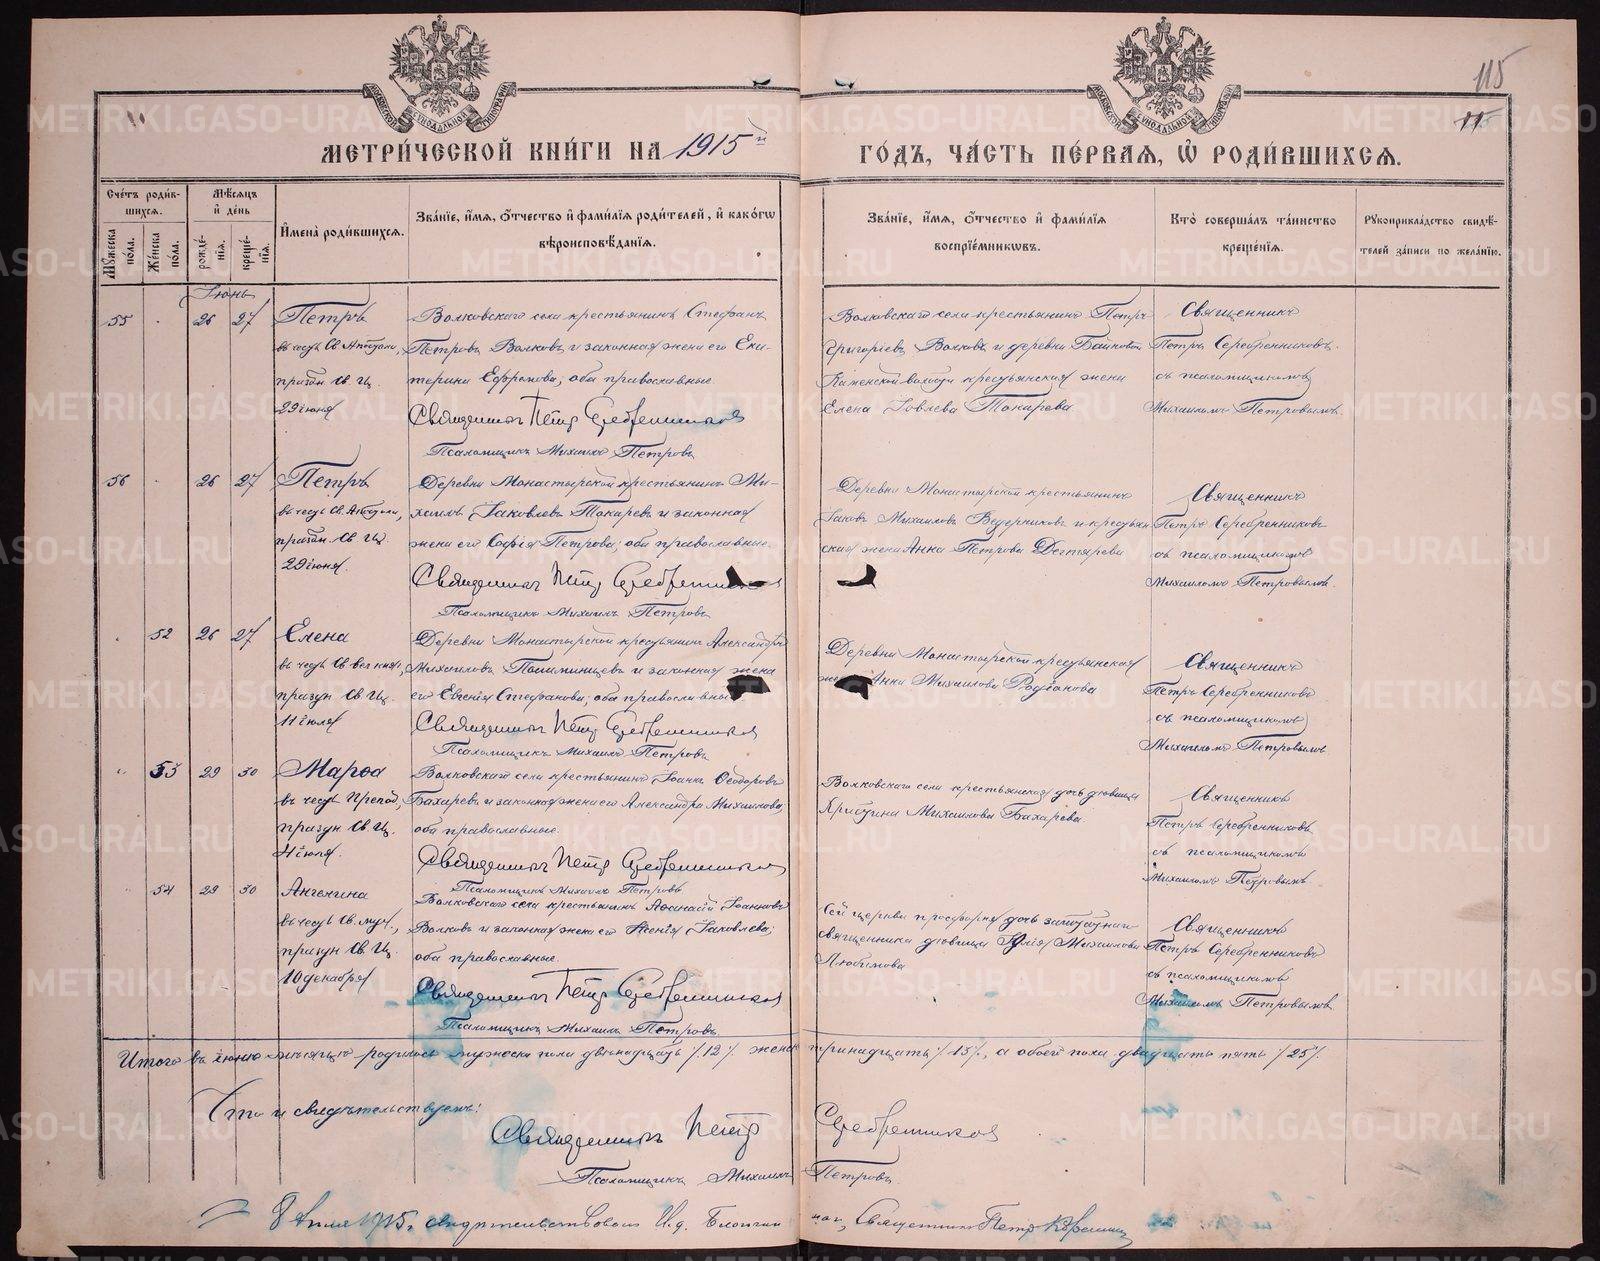 115
11
МЕТРИ́ЧЕСКОЙ КНИ́ГИ НА 1915 й
ГО́ДЪ, ЧА́СТЬ ПЕ́РВАЯ, Ѡ РОДИ́ВШИХСЯ.
Сче́тъ роди́в-
шихся.
Му́жеска по́ла.
Же́нска по́ла.
Мѣ́сяцъ и де́нь
рожде́-нія.
креще́-нія.
Имена̀ роди́вшихся.
Зва́ніе, и́мя, о́тчество и фами́лія роди́телей, и како́гѡ
вѣроисповѣ́данія.
Зва́ніе, и́мя, о́тчество и фами́лія
воспріе́мниковъ.
Кто̀ соверша́лъ та́инство
креще́нія.
Рукоприкла́дство свидѣ́-
телей за́писи по жела́нію.
Іюнь
55 26 27
Петръ
въ честь Св. Апостола,
празон. Св. Ц.
29 іюня
Волковскаго села крестьянинъ Стефанъ
Петровъ Волковъ и законная жена его Ека-
терина Ефремова; оба православные
Священникъ Петръ Серебренниковъ
Псаломщикъ Михаилъ Петровъ
Волковскаго села крестьянинъ Петръ
Григоріевъ Волковъ и деревни Байновой
Каменской волости крестьянская жена
Елена Іовлева Токарева
Священникъ
Петръ Серебренниковъ
съ псаломщикомъ
Михаиломъ Петровымъ
56 26 27
Петръ
въ честь Св. Апостола,
Св. Ц.
29 іюня.
Деревни Монастырской крестьянинъ Ми-
хаилъ Іаковлевъ Токаревъ и законная
жена его Софія Петрова; оба православные.
Священникъ Петръ Серебренниковъ
Псаломщикъ Михаилъ Петровъ
Деревни Монастырской крестьянинъ
Іаковъ Михаиловъ Ведерниковъ и крестьян-
ская жена Анна Петрова Дегтярева
Священникъ
Петръ Серебренниковъ
съ псаломщикомъ
Михаиломъ Петровымъ
52 26 27
Елена
въ честь Св. вел. княг.,
празун. Св. Ц.
11 іюля
Деревни Монастырской крестьянинъ Александръ
Михаиловъ и законная жена
его Евгенія Стефанова; оба православные
Священникъ Петръ Серебренниковъ
Псаломщикъ Михаилъ Петровъ
Деревни Монастырской крестьянская
жена Анна Михаилова Родіонова
Священникъ
Петръ Серебренниковъ
съ псаломщикомъ
Михаиломъ Петровымъ
53 29 30
Марѳа
въ честь Препод.,
празун. Св. Ц.
іюля.
Волковскаго села крестьянинъ Іоаннъ Ѳеодоровъ
Бахаревъ и законная жена его Александра Михаилова;
оба православные.
Священникъ Петръ Серебренниковъ
Псаломщикъ Михаилъ Петровъ
Волковскаго села крестьянская дочь дѣвица
Христина Михаилова Бахарева
Священникъ
Петръ Серебренниковъ
съ псаломщикомъ
Михаиломъ Петровымъ
54 29 30
Ангелина
въ честь Св. муч.,
празун. Св. Ц.
10 декабря
Волковскаго села крестьянинъ Аѳанасій Іоанновъ
Волковъ и законная жена его Ксенія Іаковлева;
оба православные.
Священникъ Петръ Серебренниковъ
Псаломщикъ Михаилъ Петровъ
Сей церкви просфорня, дочь заштатнаго
священника дѣвица Юлія Михаилова
Любимова
Священникъ
Петръ Серебренниковъ
съ псаломщикомъ
Михаиломъ Петровымъ
Итого въ іюнѣ мѣсяцѣ родилось мужеска пола двѣнадцать /12/, женска тринадцать /13/, а обоего пола двадцать пять /25/.
Что и свидѣтельствуемъ:
Священникъ Петръ Серебренниковъ
Псаломщикъ Михаилъ Петровъ
8 Іюля 1915 г. свидѣтельствовалъ И. д. Благочиннаго, Священникъ Петръ
METRIKI.GASO-URAL.RU